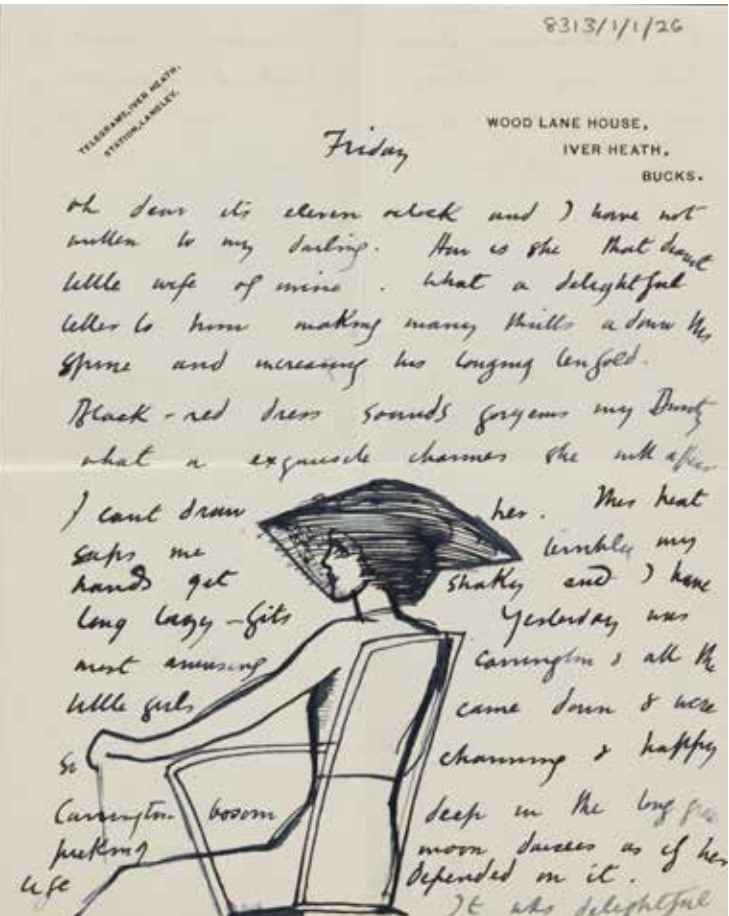 8313/1/1/26
TELEGRAMS, IVER HEATH.
STATION, LANGLEY.
WOOD LANE HOUSE,
IVER HEATH,
BUCKS.
Friday
oh dear its eleven oclock and I have not
written to my darling. How is she that
little wife of mine. What a delightful
letter to him making many thrills adown his
spine and increasing his longing tenfold.
Black-red dress sounds gorgeous my
what a exquisite she will
I cant draw her. This heat
saps me terribly my
hands get shaky and I have
long lazy-fits Yesterday was
most amusing Carrington & all the
little girls came down & were
so charming & happy
Carrington bosom deep in the long
picking moon daisies as if her
life depended on it.
It was delightful